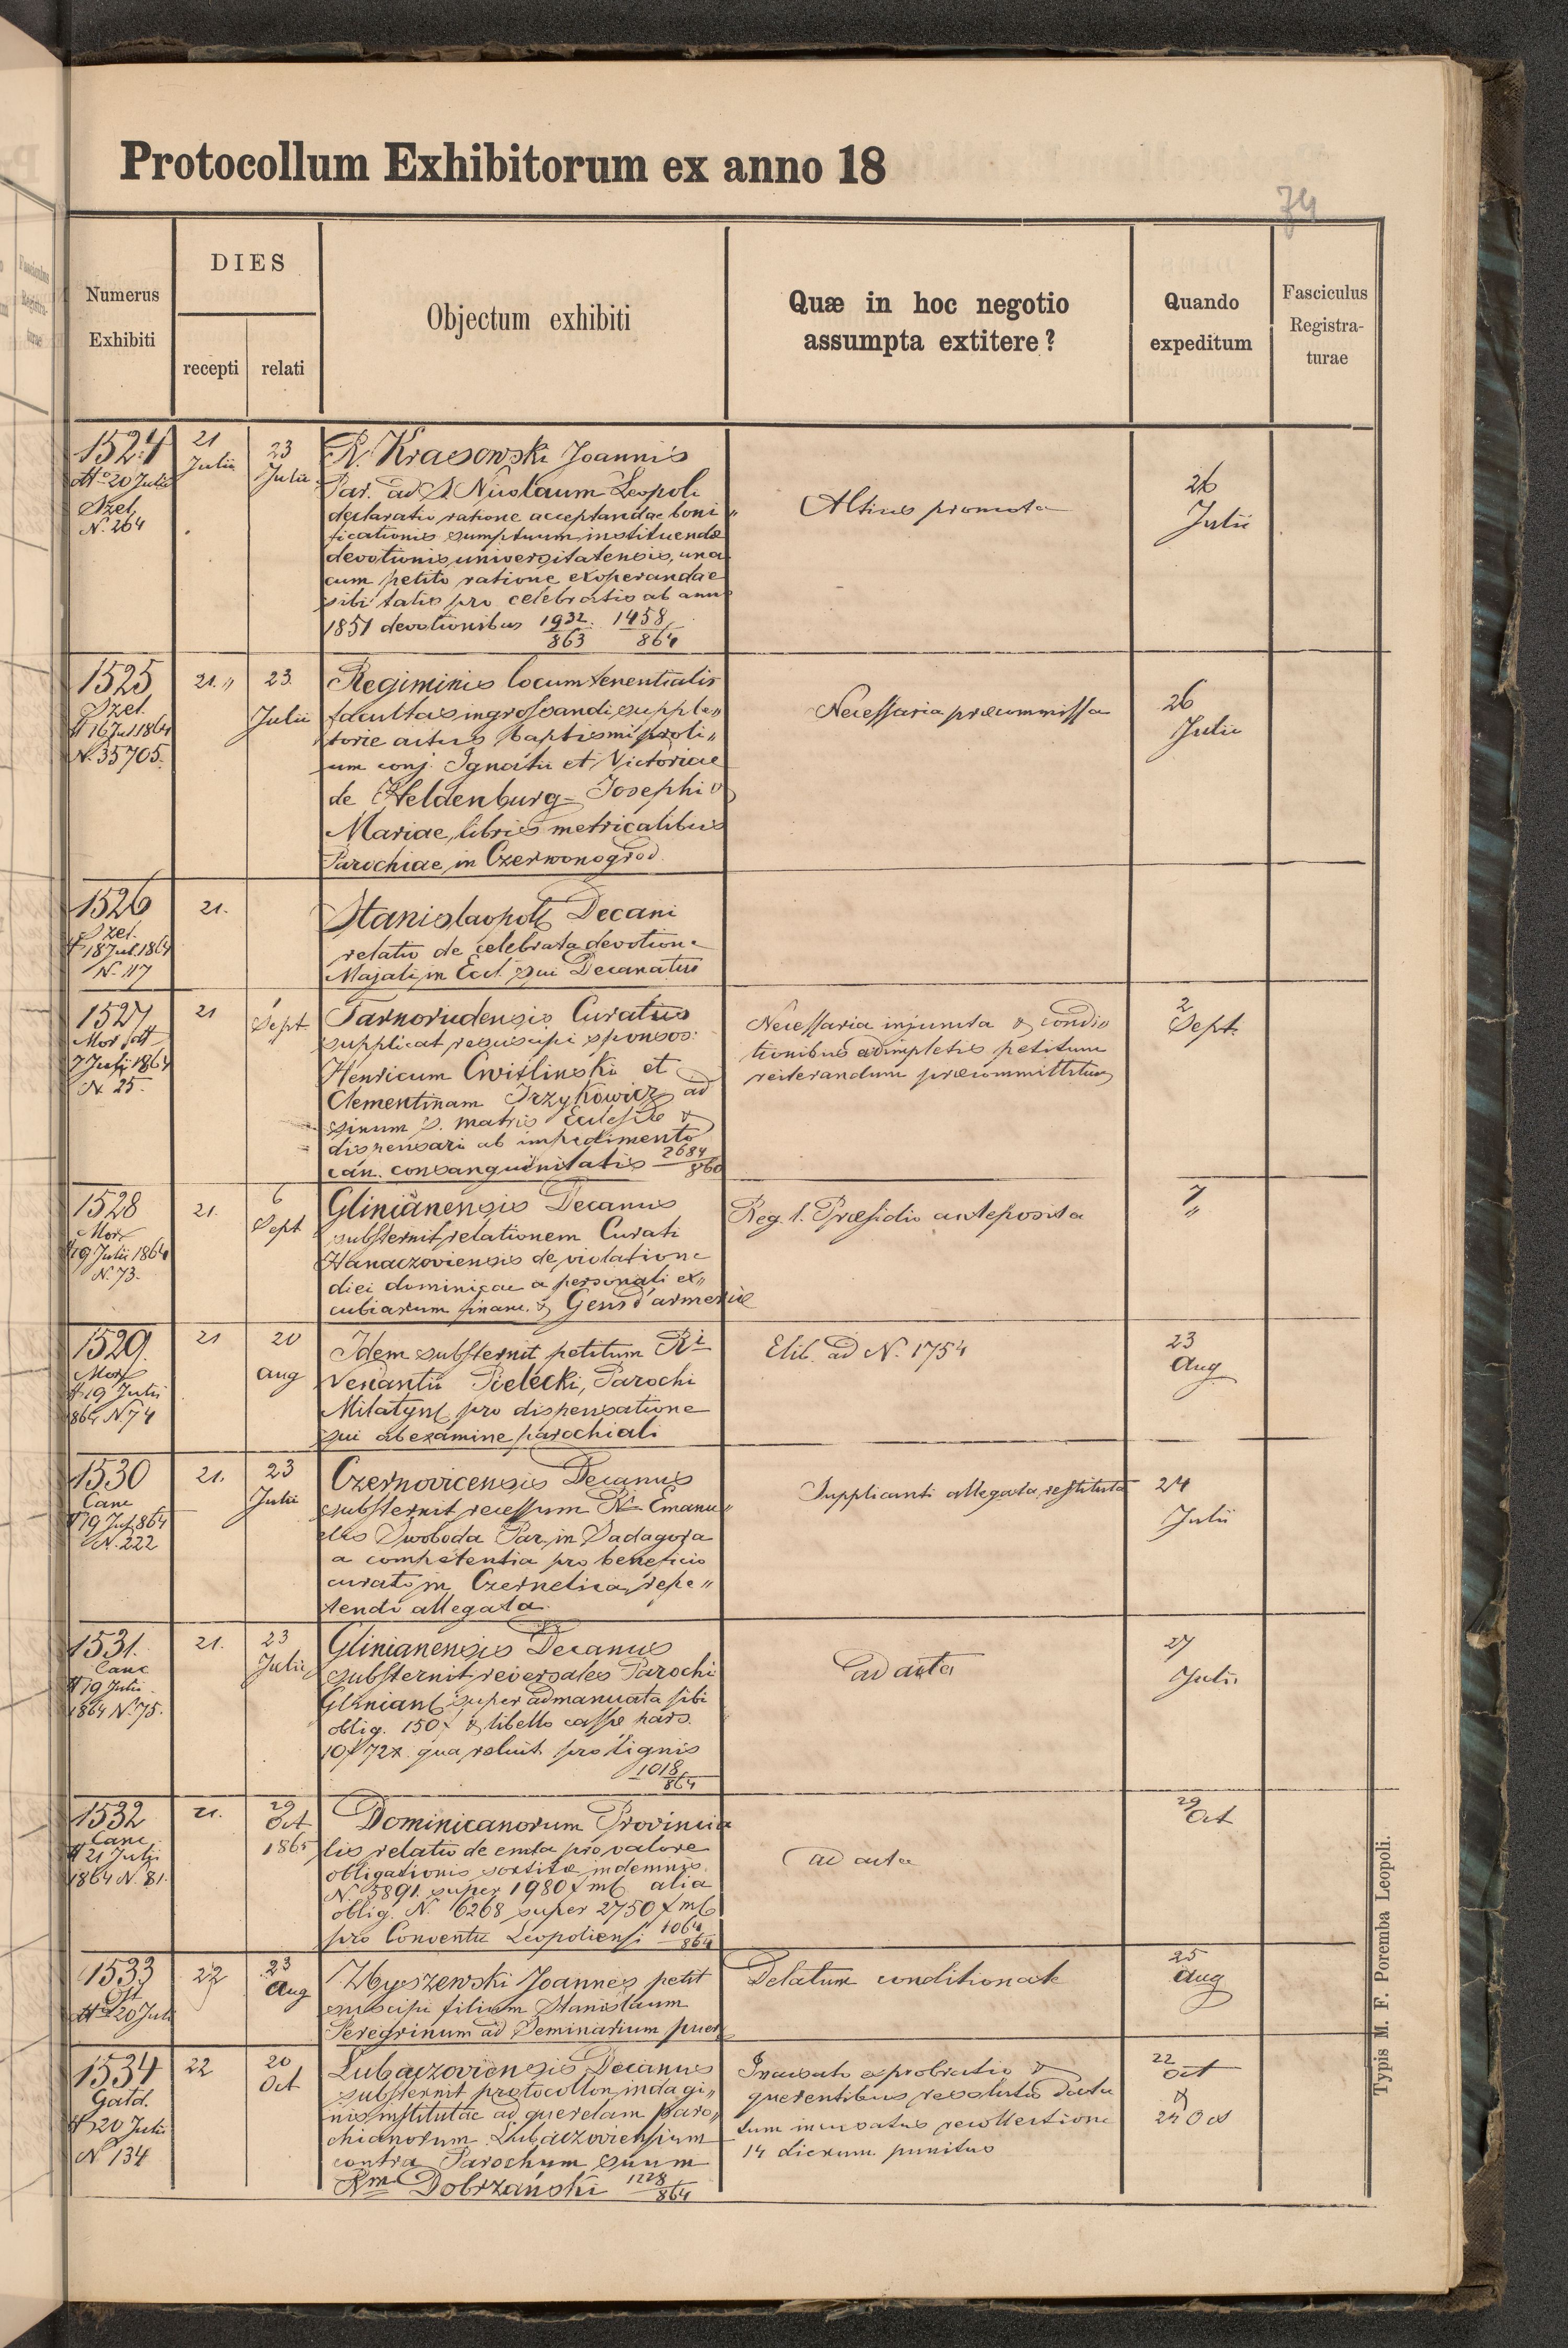 Protocollum Exhibitorum ex anno 18
74
Numerus Exhibiti
DIES
recepti
relati
Objectum exhibiti
Quæ in hoc negotio
assumpta extitere?
Quando
expeditum
Fasciculus
Registra-
turae
1524
20 Julii
Szel.
N. 264
21
Julii
23
Julii
R. Krasowski Joannis
Par. ad S. Nicolaum Leopoli
declaratio ratione acceptandae boni„
ficationis sumptuum instituendæ
devotionis universitatensis, una
cum petito ratione exoperandae
sibi talis pro celebratis ab anno
1851 devotionibus 1932/863 1458/864
Altius promota
26
Julii
1525
Szel.
16 Jul 1864
N. 35705.
21. „
23.
Julii
Regiminis locumtenentialis
facultas ingrossandi supple„
torie actus baptismi proli„
um conj. Ignatii et Victoriae
de Heldenburg = Josephi &
Mariae, libris metricalibus
Parochiae in Czerwonogrod
Necessaria præcommissa
26
Julii
1526
Szel.
18 Jul. 1864
N. 117
21.
Stanislaopol Decani
relatio de celebrata devotione
Majali in Eccl. sui Decanatus
1527
Mor
7 Julii 1864
N 25.
21
1
Sept
Tarnorudensis Curatus
supplicat resuscipi sponsos:
Henricum Cwislinski et
Clementinam Irzykowicz ad
sinum S. matris Ecclesiæ &
dispensari ab impedimento
can. consanguinitatis 2684/860
Necessaria injuncta & condi„
tionibus adimpletis petitum
reiterandum præcommittitur
2
Sept.
1528
Mor
19 Julii 1864
N. 73.
21.
6
Sept
Glinianensis Decanus
substernit relationem Curati
Hanaczoviensis de violatione
diei dominicae a personali ex„
cubiarum financ. & Gens d'armeriæ
Reg. l. Præsidio anteposita
7
„
1529.
Mor
19 Julii
864 N. 74
21
20
aug
Idem substernit petitum Ri
Venantii Pielecki, Parochi
Milatyn pro dispensatione
sui ab examine parochiali
Elib. ad N. 1754
23
Aug
1530
Canc
19 Jul 864
N. 222
21.
23
Julii
Czernovicensis Decanus
substernit recessum R Emanu„
elis Swoboda Par. in Sadagora
a competentia pro beneficio
curato in Czernelica, repe„
tendo allegata.
Supplicanti allegata restituta
24
Julii
1531.
Canc
19 Julii
1864 N. 75.
21.
23
Julii
Glinianensis Decanus
substernit reversales Parochi
Glinian super admanuata sibi
oblig. 150 f & libello cassæ pars.
10 f 72 x qua reluit. pro lignis
1018/864
ad acta
27
Julii
1532
Canc
21 Julii
1864 N. 81.
21.
29
Oct
1865
Dominicanorum Provincia
lis relatio de emta pro valore
obligationis sortitæ indemnis.
N. 5891. super 1980 f m alia
oblig. N. 6268 super 2750 f m
pro Conventu Leopoliensi 1064/864
ad acta
29
Oct
1533
20 Juli
22
23
Aug
Zbyszewski Joannes petit
suscipi filium Stanislaum
Peregrinum ad Seminarium puer
Delatum conditionate
25
Aug
1534
Gatd.
20 Julii
N 134
22
20
Oct
Lubaczoviensis Decanus
substernit protocollon indagi„
nis institutae ad querelam paro„
chianorum Lubaczoviensium
contra Parochum suum
Rm Dobrzański 1228/864
Incusato exprobratio &
querentibus resolutio data
tum incusatus recollectione
14 dierum punitus
22
Oct
&
24 Oct
Typis M. F. Poremba Leopoli.